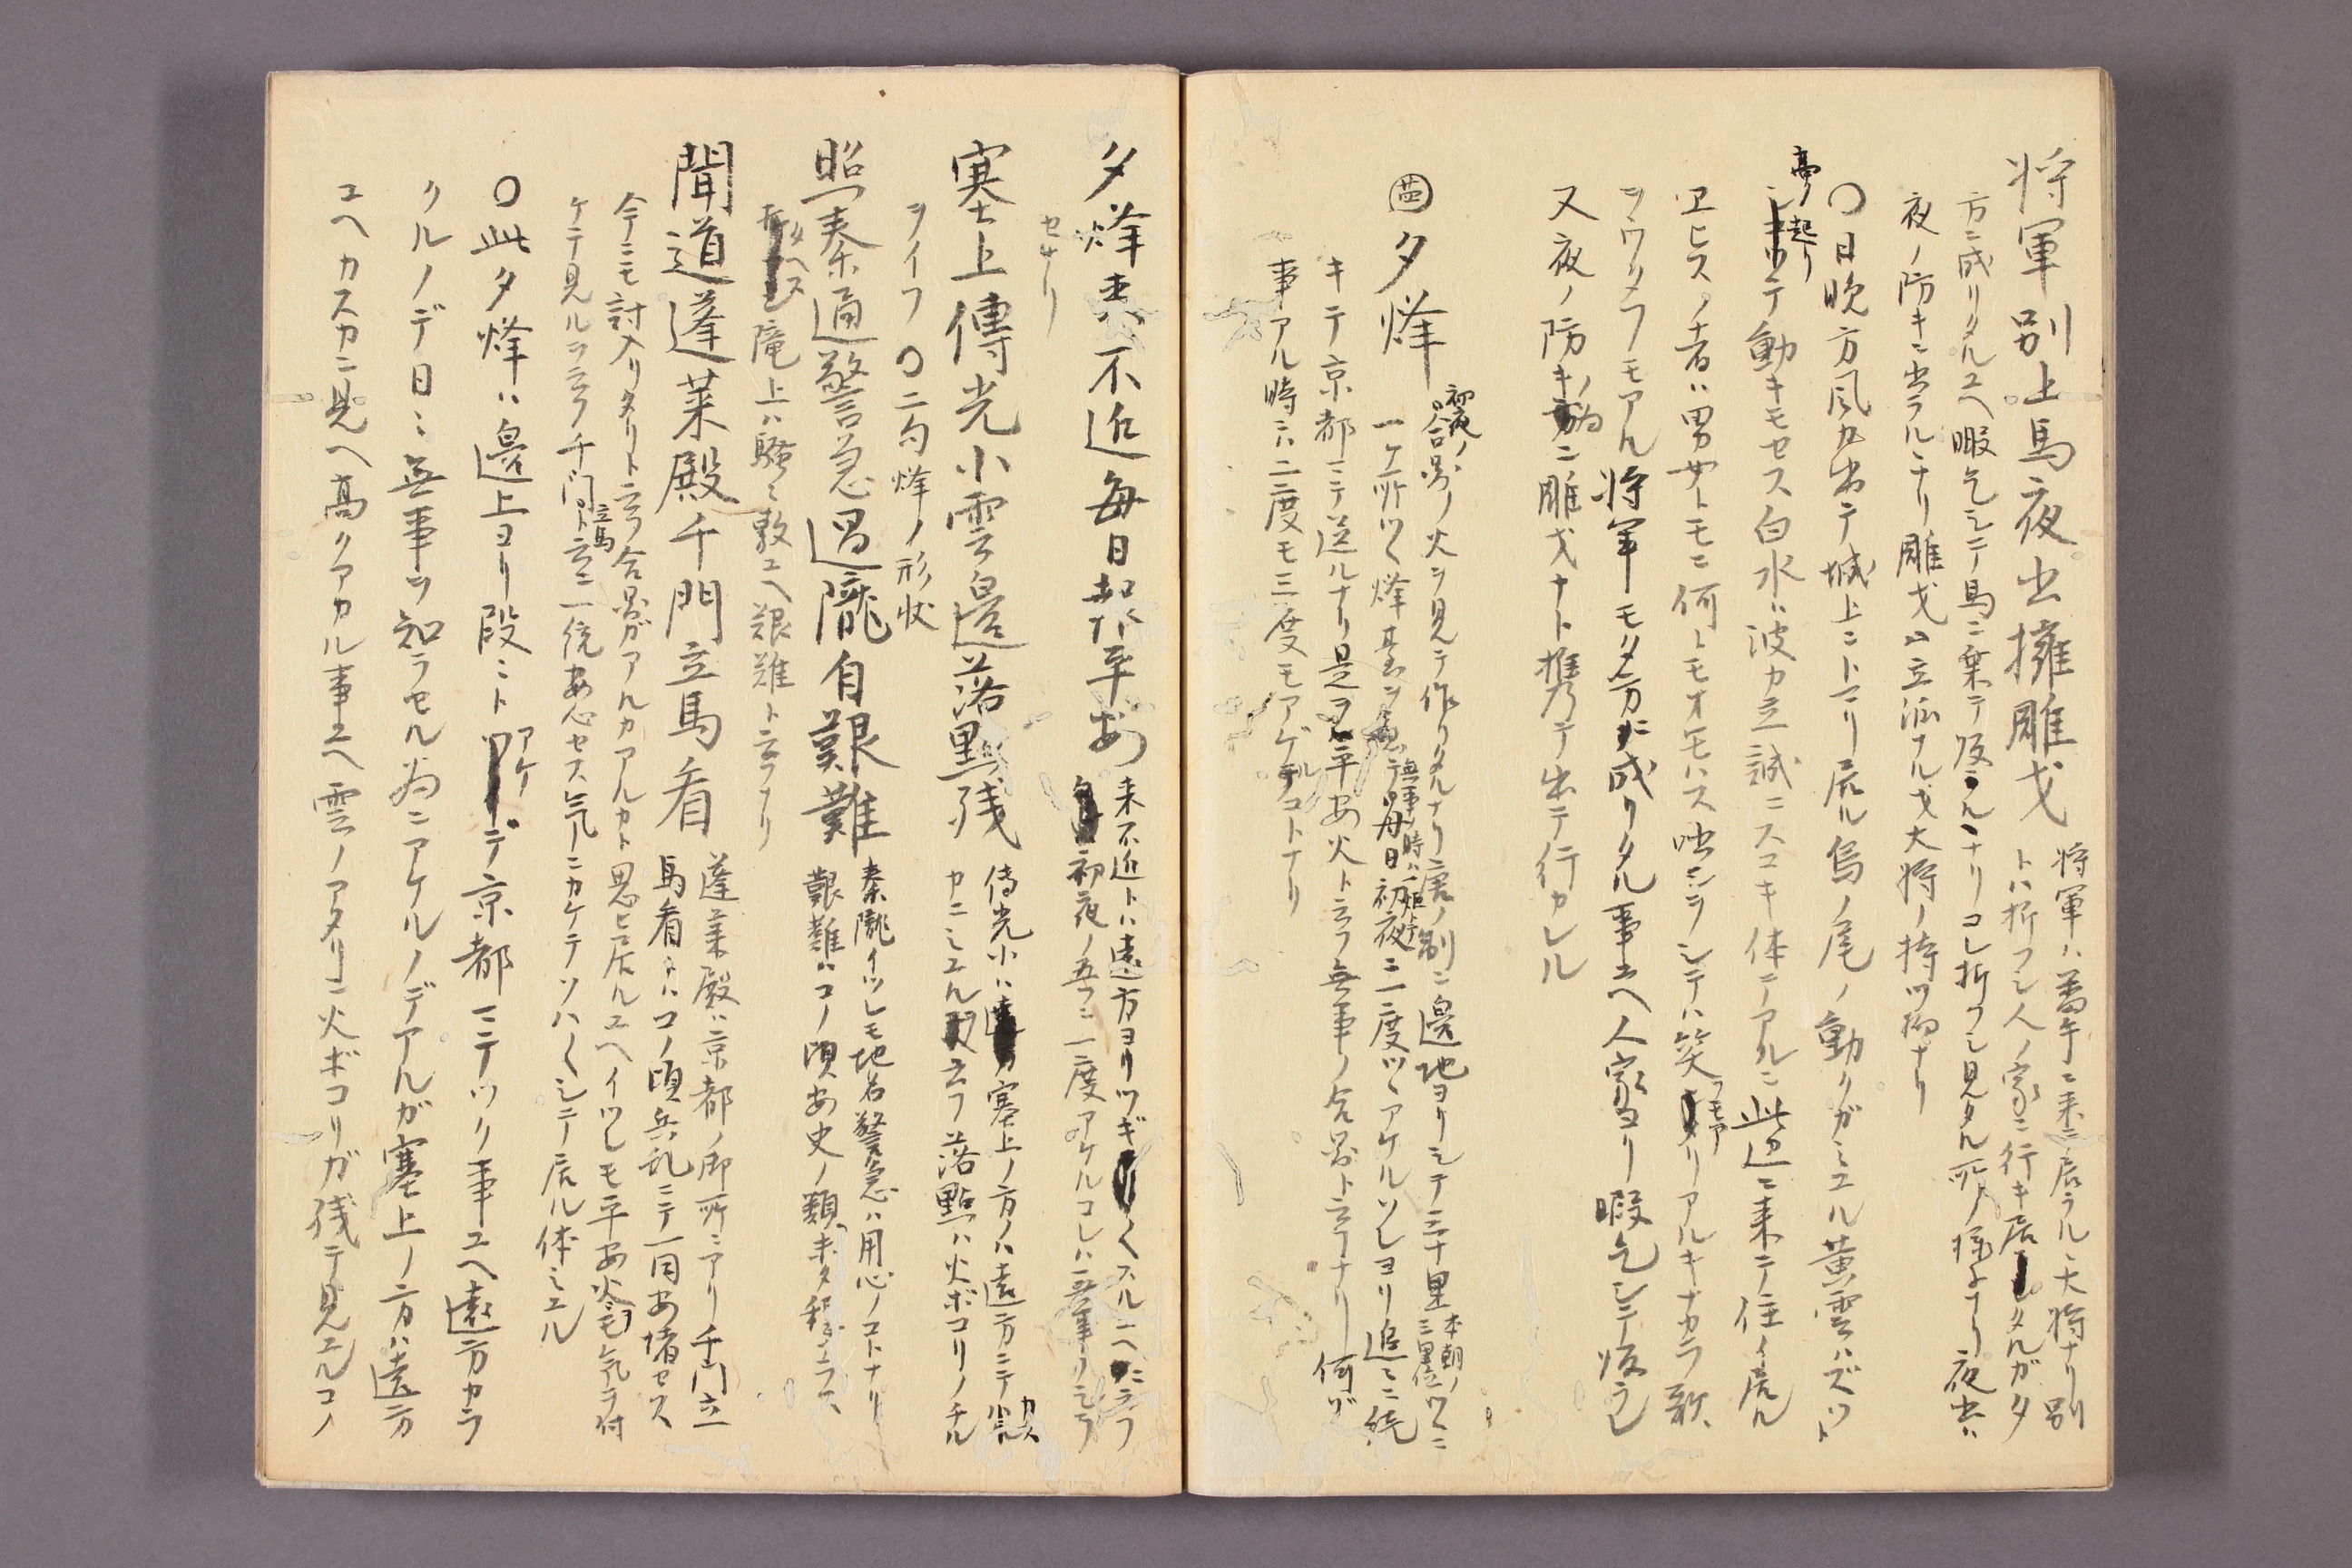 将軍別上馬夜出擁雕戈
将軍ハ蕃牛ニ来ニ居ラル大将ナリ別
トハ折フシ人ノ家ニ行キ居タルガタ
方ニ成リタルユヘ暇乞シテ馬ニ乗テ皈ラルヽナリコレ折フシ見タル所ノ様子ナリ夜出ハ
夜ノ防キニ出ラルヽナリ雕戈ハ立派ナル戈大将ノ持ツ物ナリ
〇日晩方風カ出テ城上ニトマリ居ル烏ノ尾ノ動クガミエル黄雲ハズツト
高ク起リテ動キモセス白水ハ波カ立誠ニスコキ体テアルニ此辺ニ来テ住イ居ル
ヱヒスノ者ハ男女トモニ何トモオモハス咄シヲシテハ笑フモアリアルキナカラ歌
ヲウタフモアル将軍モタ方ニ成リタル事ユヘ人家ヨリ暇乞シテ皈ラレ
又夜ノ防キノ為ニ雕戈ナト携テ出テ行カレル
夕烽
初夜ノ合図ノ火ヲ見テ作リタルナリ唐ノ制ニ邊地ヨリシテ三十里
本朝ノ
三里位
ツヽニ
一ケ所ツヽ烽基ヲ置
無事ノ時ハ
毎日初夜ニ一度ツヽアケルソレヨリ追々ニ続
キテ京都ニテ送ルナリ是ヲ平安火ト云フ無事ノ合図ト云フナリ何ゾ
事アル時ハ二度モ三度モアゲルコトナリ
夕烽来不近毎日報平安
来不近トハ遠方ヨリツギ〱スルユヘニ云フ
初夜ノ五ツニ一度アケルコレハ無事ヲシラ
セナリ
塞上傳光小雲邉落點残
傳光小ハ塞上ノ方ノハ遠方ニテ
カニミエル云フ落點ハ火ボコリノチル
ヲイフ〇二句烽ノ形状
照秦通警急過隴自艱難
秦隴イツレモ地名警急ハ用心ノコトナリ
艱難ハコノ頃安史ノ類
タヘス隴上ハ騒々敷ユヘ艱難ト云フナリ
聞道蓬莱殿千門立馬看
蓬莱殿ハ京都ノ御所ニアリ千門立
馬看トハコノ頃兵乱ニテ一同安堵セス
今ニモ討入リタリト云フ合図ガアルカアルカト思ヒ居ルユヘイツレモ平安火ヲモ気ヲ付
ケテ見ルヲ云フ千門ト云ニ一統安心セス気ニカケテソハ〱シテ居ル体ミエル
立馬
〇此夕烽ハ邉上ヨリ段々トアケテ京都ニテツク事ユヘ遠方カラ
クルノデ日々無事ヲ知ラセル為ニアケルノデアルガ塞上ノ方ハ遠方
ユヘカスカニ見ヘ高クアカル事ユヘ雲ノアタリニ火ボコリガ残テ見エルコノ